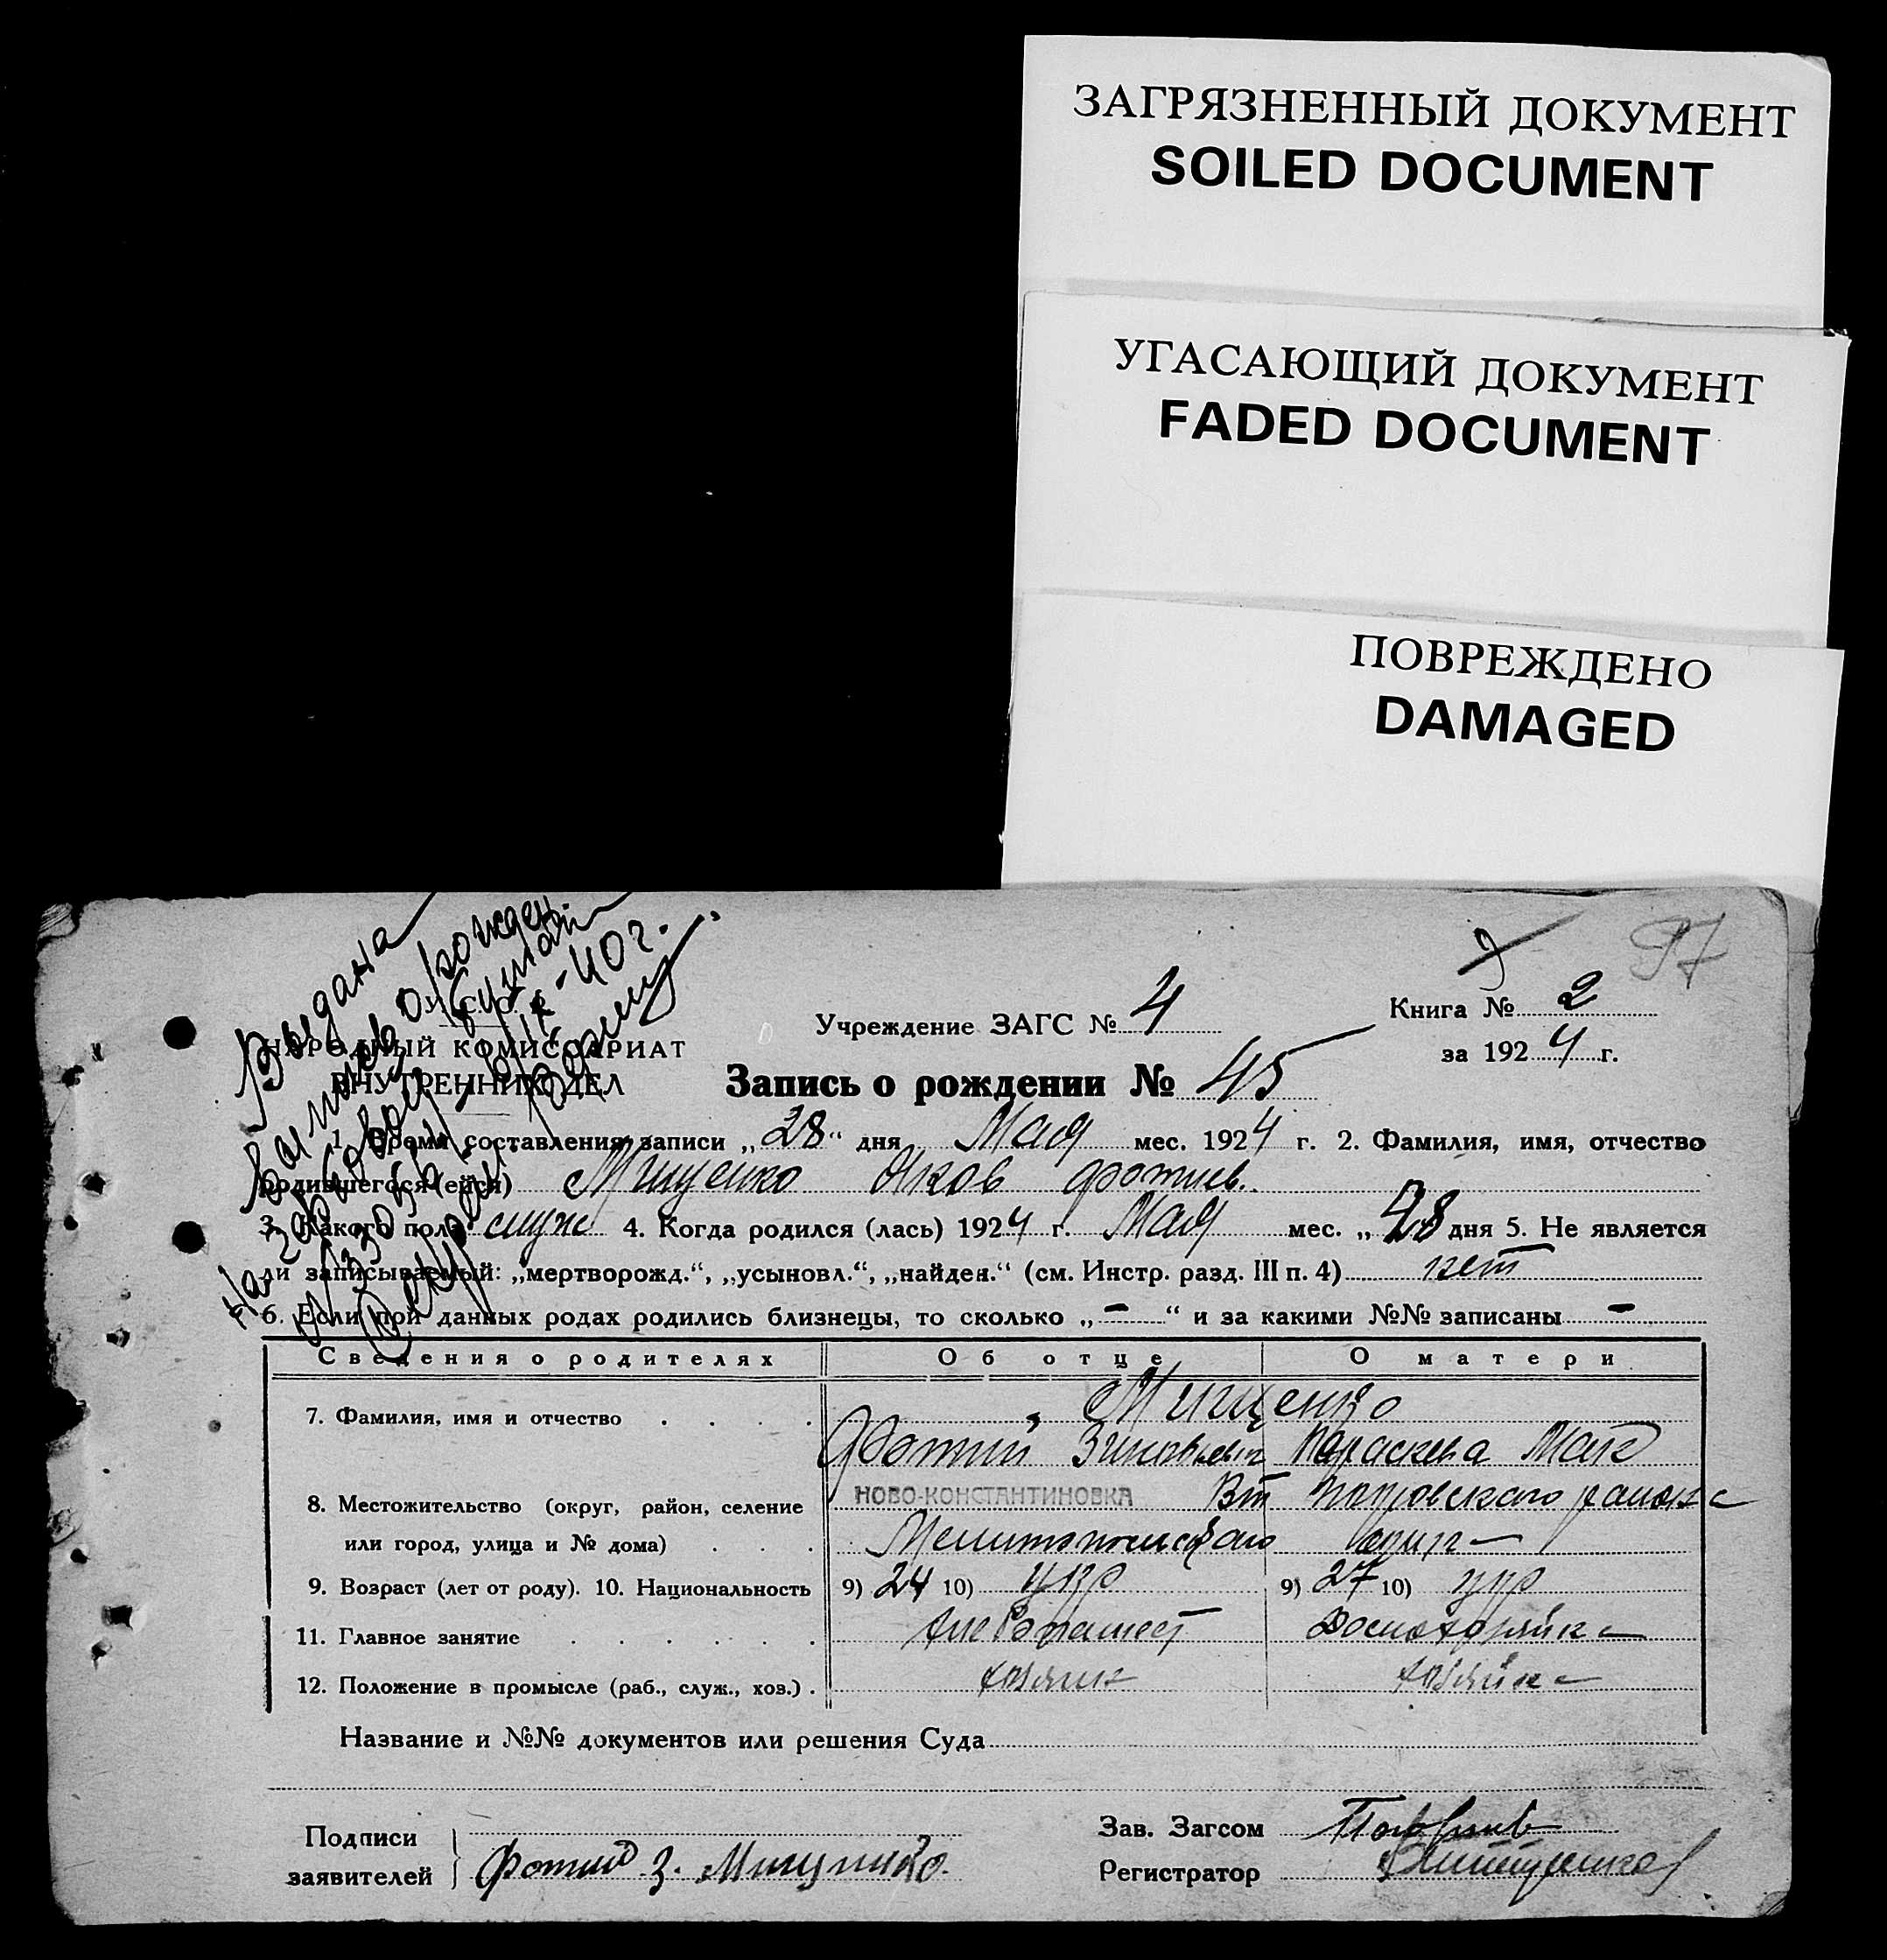 ЗАГРЯЗНЕННЫЙ ДОКУМЕНТ
SOILED DOCUMENT
УГАСАЮЩИЙ ДОКУМЕНТ
FADED DOCUMENT
ПОВРЕЖДЕНО
DAMAGED
97
Выдана
о рожден
40 г.
У. С. С. Р.
НАРОДНЫЙ КОМИССАРИАТ
ВНУТРЕННИХ ДЕЛ
Учреждение ЗАГС № 4
Книга № 2
за 1924 г.
Запись о рождении № 45
1. Время составления записи „28“ дня Мая мес. 1924 г. 2. Фамилия, имя, отчество
родившегося (ейся) Мищенко Яков Фотиев.
3. Какого пола муж 4. Когда родился (лась) 1924 г. Мая мес. „ 28 дня 5. Не является
ли записываемый: „мертворожд.“, „усыновл.“, „найден.“ (см. Инстр. разд. III п. 4) нет
6. Если при данных родах родились близнецы, то сколько „—“ и за какими №№ записаны —
Сведения о родителях Об отце О матери
7. Фамилия, имя и отчество Мищенко
Фотий Зиновьевич Параскева
8. Местожительство (округ, район, селение НОВО-КОНСТАНТИНОВКА района
или город, улица и № дома) Мелитопольского
9. Возраст (лет от роду). 10. Национальность 9) 24 10) укр 9) 27 10) укр
11. Главное занятие Хлебопашест Домохозяйка
12. Положение в промысле (раб., служ., хоз.) хозяин хозяйка
Название и №№ документов или решения Суда
Подписи
заявителей Фотий З. Мищенко.
Зав. Загсом
Регистратор